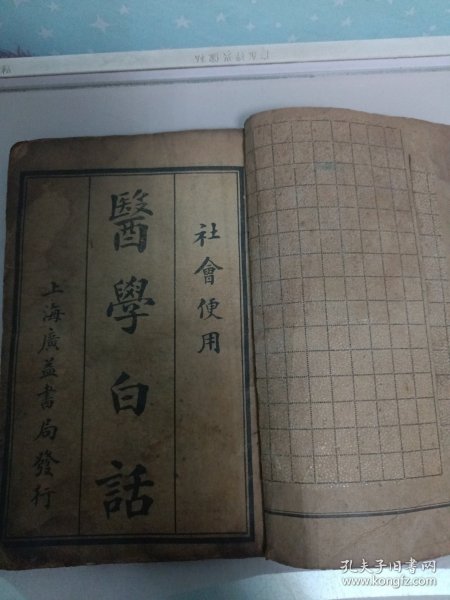 社會便用
醫學白話
上海廣益書局發行
孔夫子旧书网
www.kongfz.com